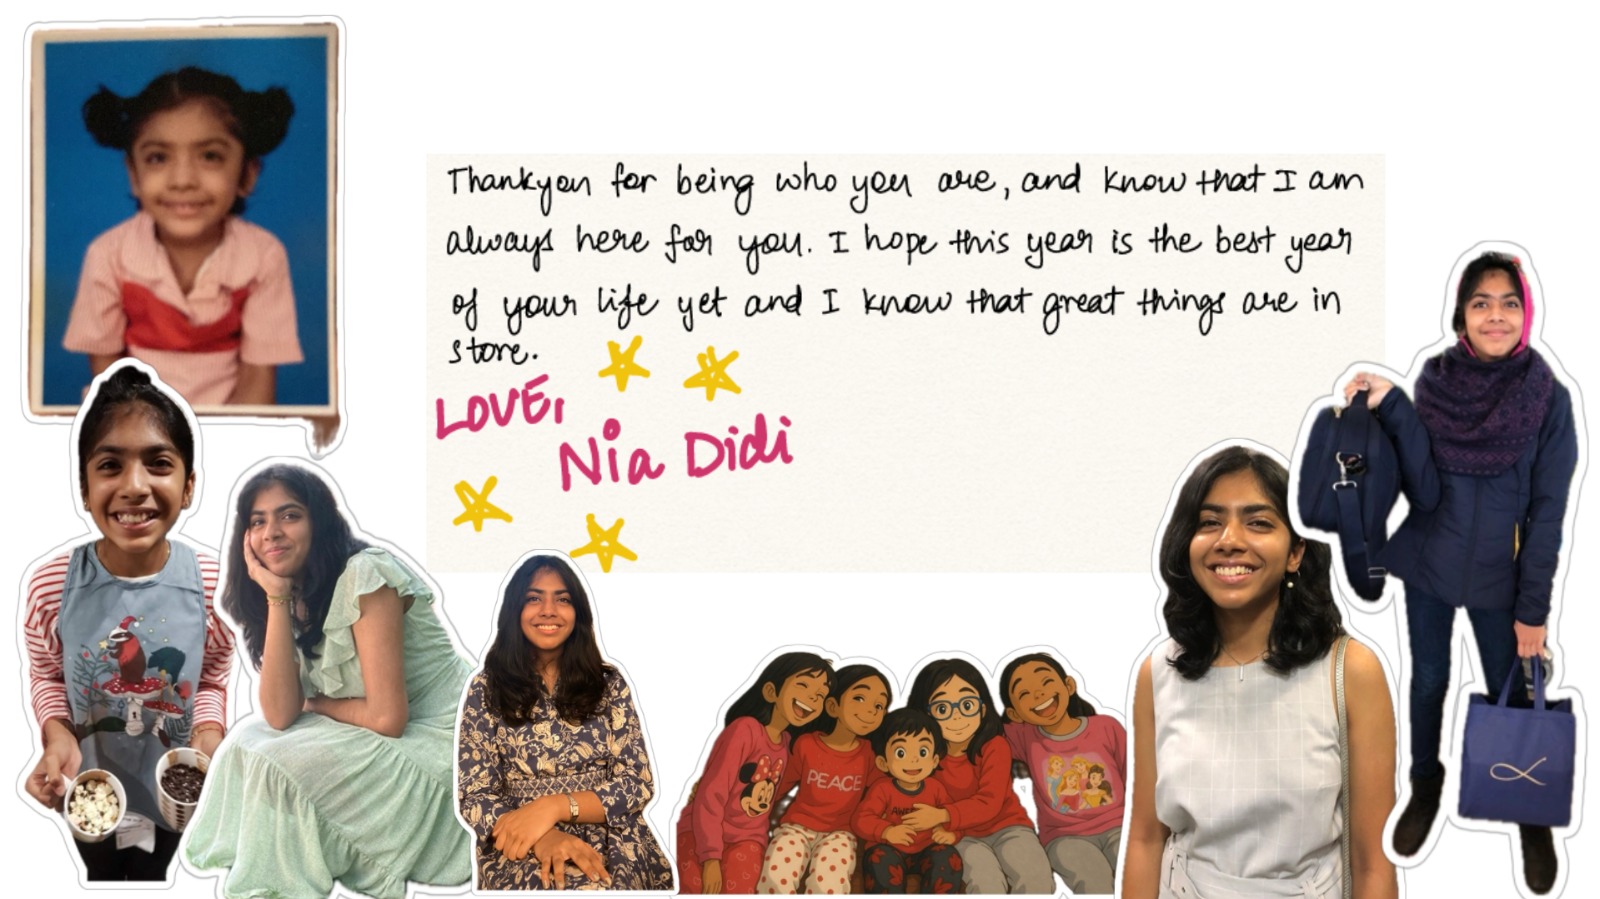 Thankyou for being who you are, and know that I am
always here for you. I hope this year is the best year
of your life yet and I know that great things are in
store.
LOVE,
Nia Didi
PEACE